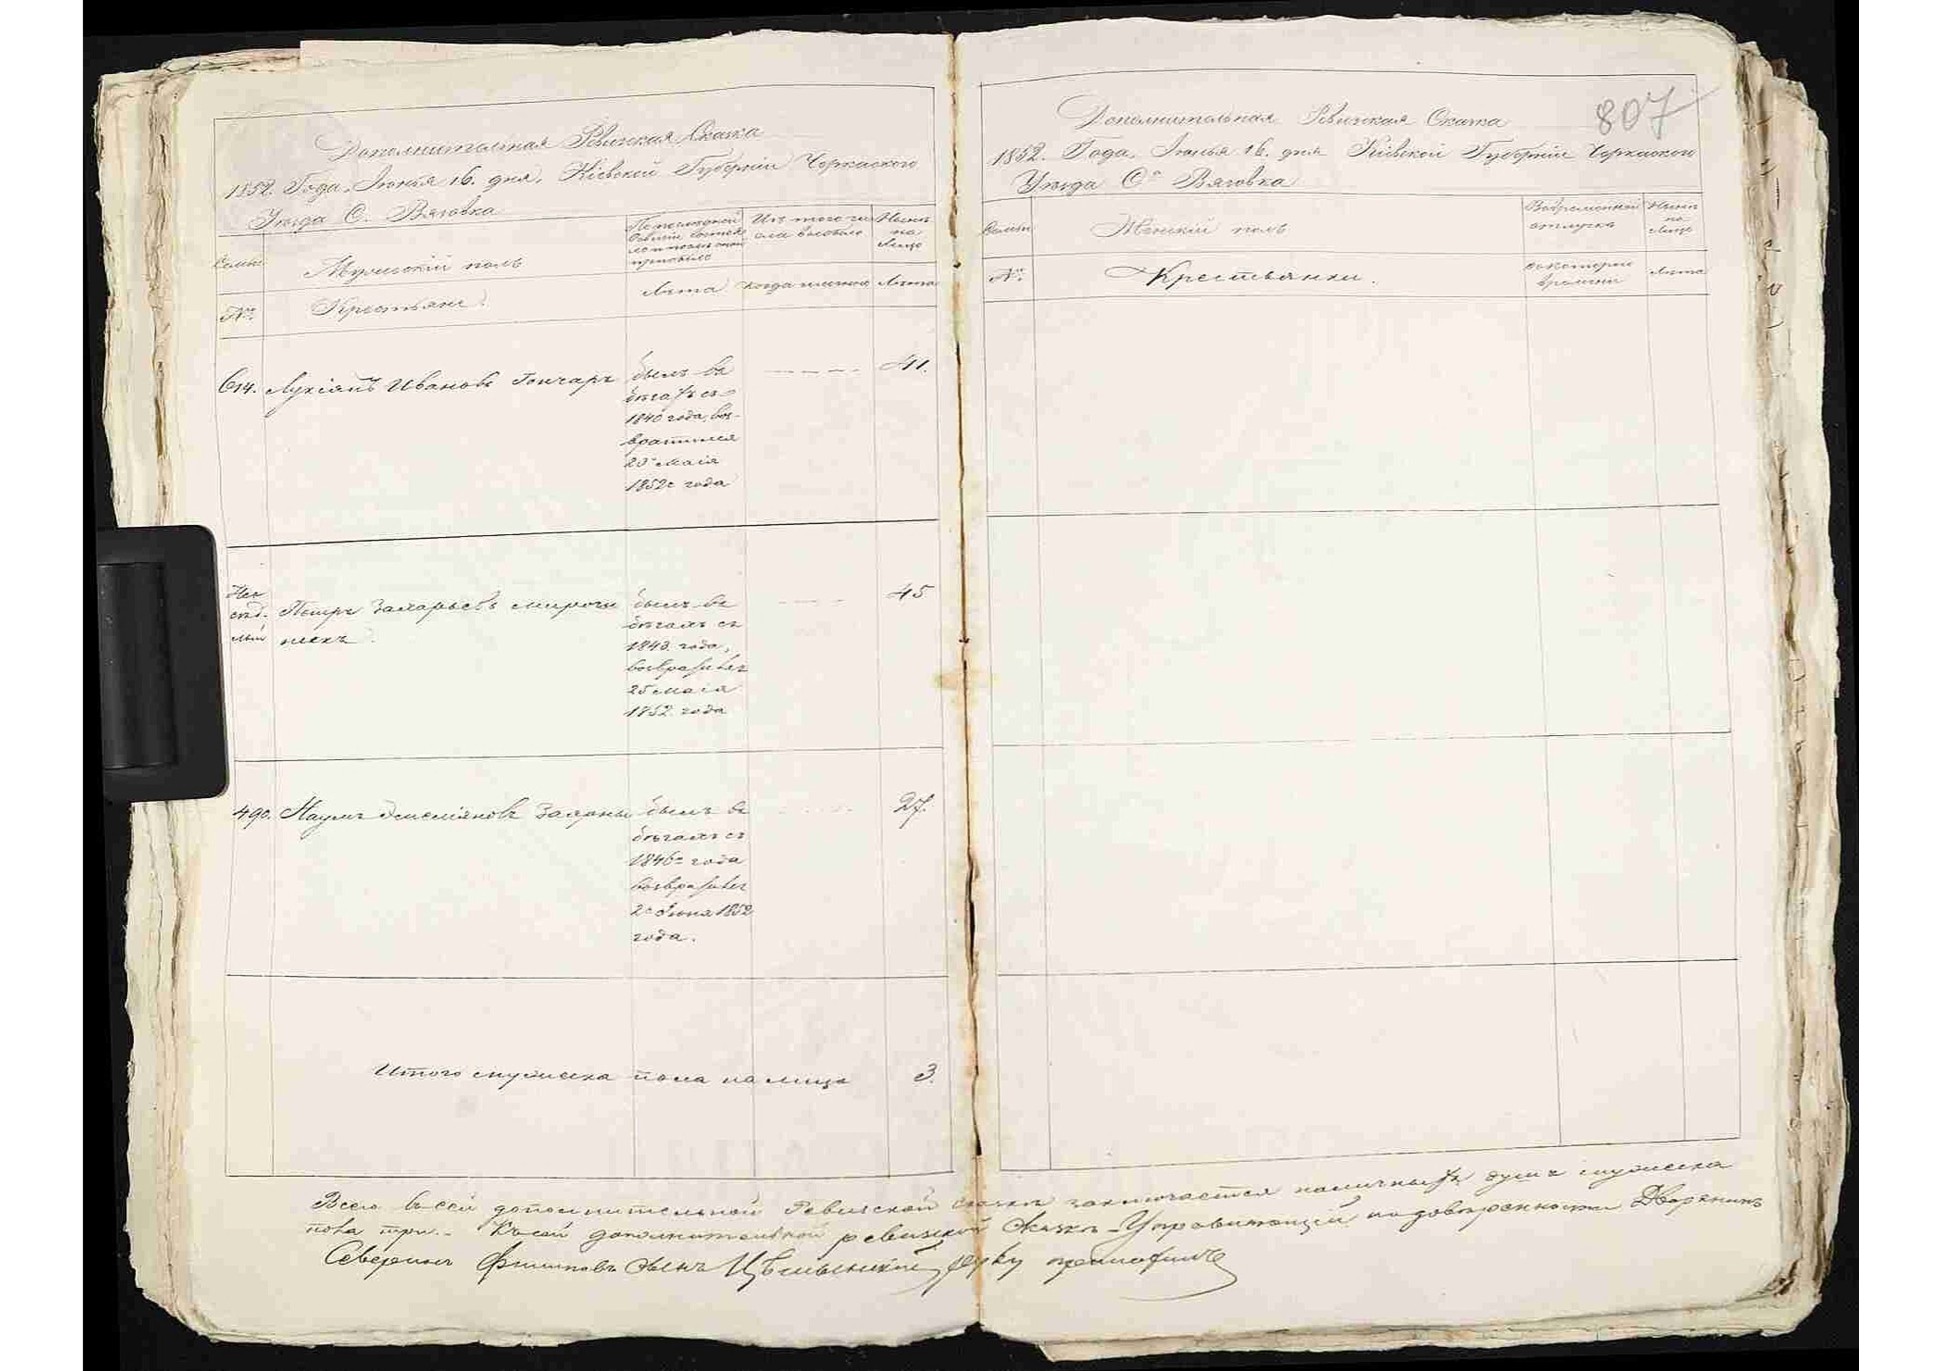 Дополнительная Ревизская Сказка
1852. Года, Іюнья 16. дня, Кіевской Губерніи Черкаского
Уезда С. Вязовка
Семьи
Мужескій полъ
Изъ того чи-
сла выбыло
Нынѣ
на
лицо
№
Крестьяне.
Лѣта
когда именно
Лѣта
614.
Лукіянъ Ивановъ Гончаръ
былъ въ
бѣгахъ съ
1840 года, воз-
вратился
Маія
1852 года
41.
Петръ Захарьевъ
былъ въ
бѣгахъ съ
1843. года,
25 Маія
1852. года
45
490.
Наумъ
былъ въ
бѣгахъ съ
1846 года
2 Июня 1852
года.
27.
Итого мужеска пола на лицо 3.
807
Дополнительная Ревизская Сказка
1852. Года, Іюнья 16. дня Кіевской Губерніи Черкаского
Уезда С. Вязовка
Семьи
Женскій полъ
Во временной
отлучкѣ
Нынѣ
на
лицо
№
Крестьянки.
съ котораго
времени
Лѣта
Всего въ сей дополнительной Ревизской сказкѣ заключается наличныхъ душъ мужеска
пола три. Къ сей дополнительной ревизской сказкѣ Управляющій по довѣренности Дворянинъ
Северинъ Филиповъ сынъ руку приложилъ